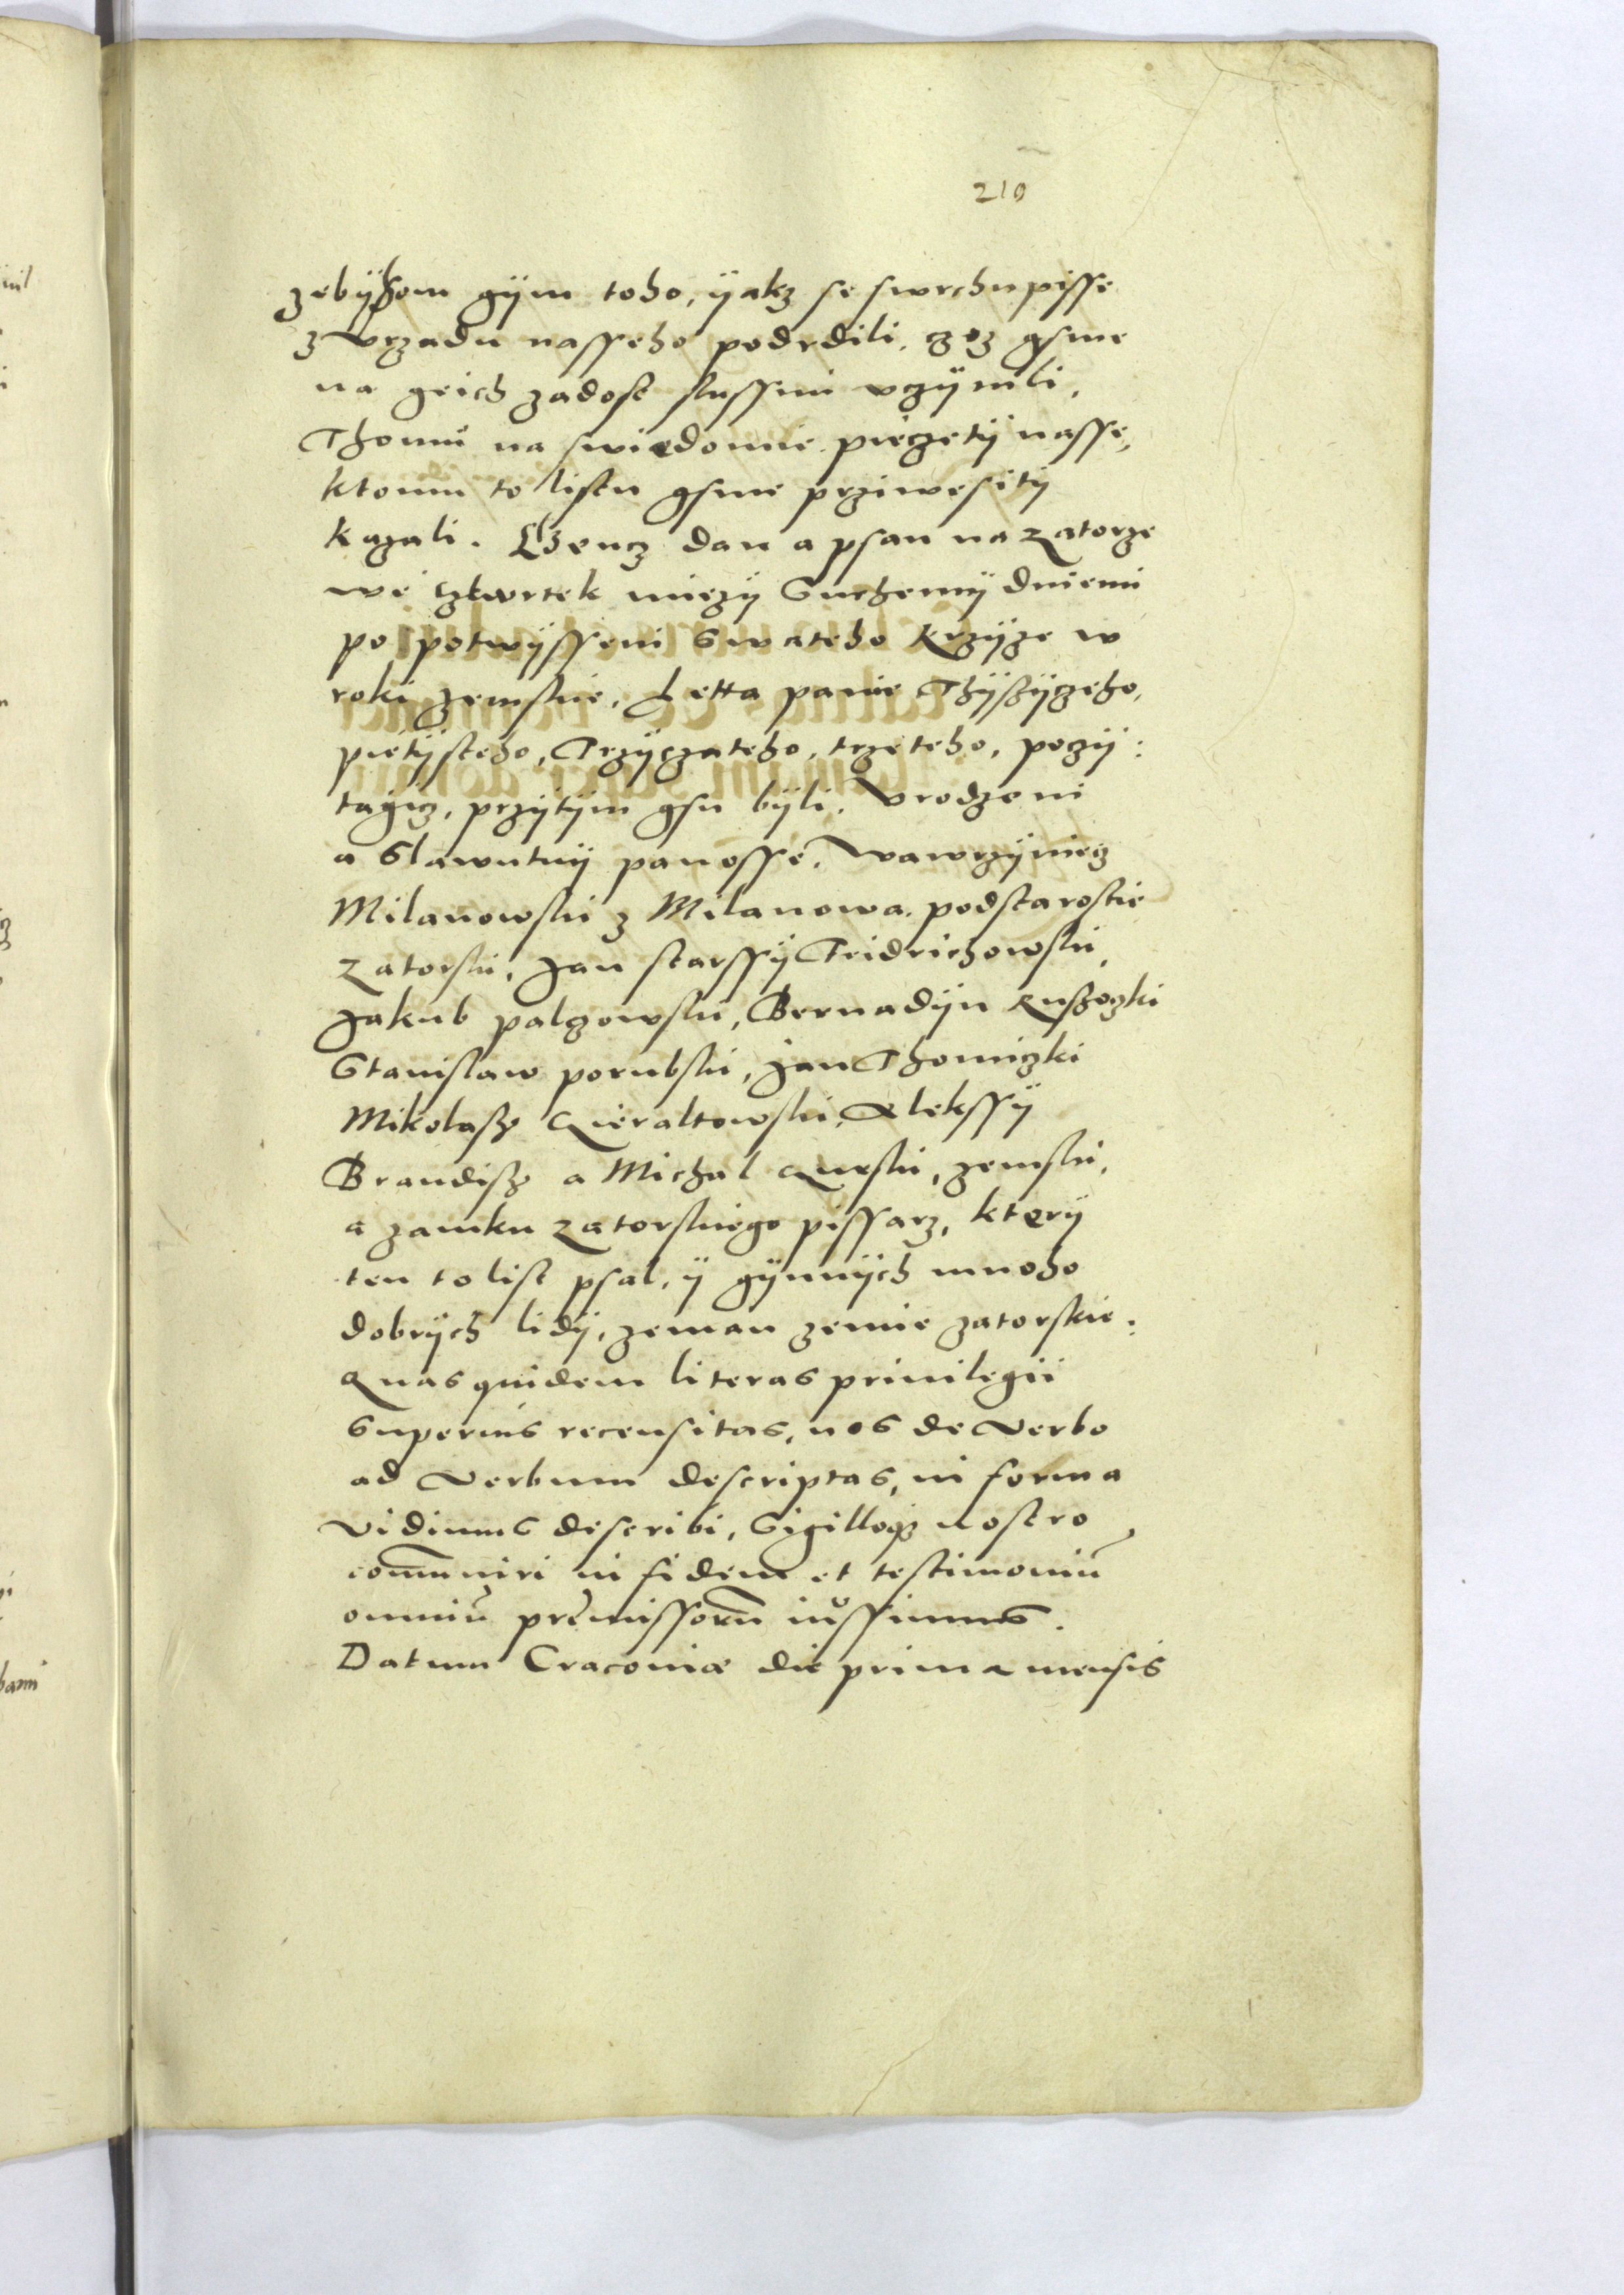 210
zebychom gÿm toho, ÿakz se swrchu pisse
z Vrzadu nasseho podrdili, czoz gsme
na geich zadost slussni vczÿnili,
Thomu na swiedomie pieczetÿ nasse,
ktomu to listu gsme prziwesitÿ
kazali. Genz dan a psan na Zatorze
we cztwrtek miezÿ Suchemÿ dniemi
po potwÿsseni Swateho Krzÿze w
roki zemskie, Letta panie Thÿsÿczeho,
pietÿsteho, Trzÿczateho, trzeteho, poczÿ:
tagicz, przÿtÿm gsu bÿli, Vrodzeni
a Slawutnÿ panosse, Wawrzÿniecz
Milanowski z Milanowa podstarostie
Zatorski, Jan starssÿ Fridrichowski,
Jakub palczowski, Bernadÿn Rusoczki
Stanislaw porubski, Jan Thomiczki
Mikolasz Gieraltowski, Alekssÿ
Brandisz a Michal Gurski, zemski,
a zamku Zatorskiego pissarz, kterÿ
ten to list psal, ÿ gÿnnÿch mnoho
dobrÿch lidÿ, zeman zemie zatorskie:
Quas quidem literas priuilegii
superius recensitas, nos de Verbo
ad Verbum descriptas, in forma
Vidimus describi, Sigilloq3 nostro
com̄uniri in fidem et testimoniū
omniū premissorū iussimus.
Datum Cracoviæ die prima mensis